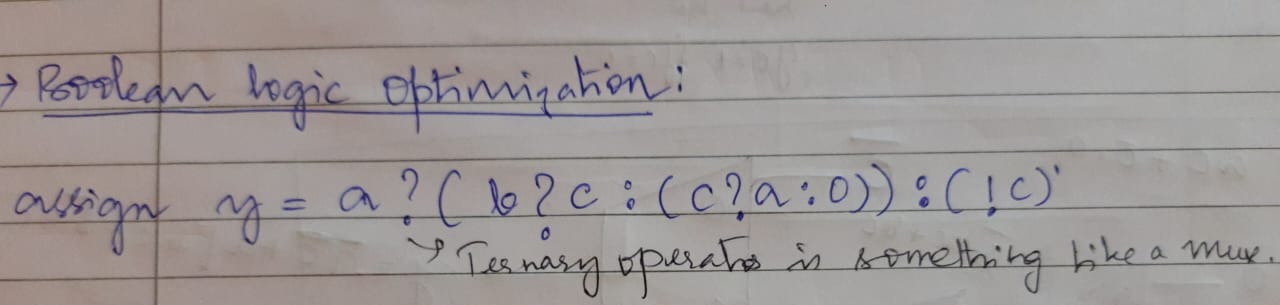 → Boolean logic optimization:
assign y = a?(b?c:(c?a:0)):(!c)
→ Ternary operator is something like a mux.